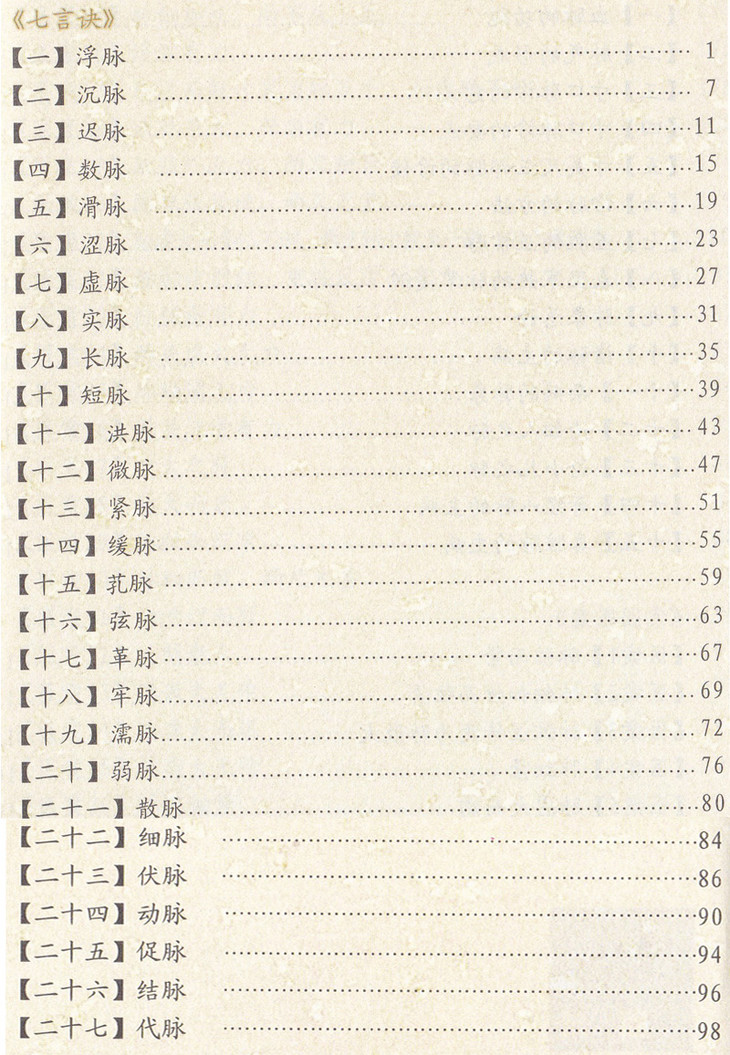 《七言诀》
【一】浮脉 ………… 1
【二】沉脉 ………… 7
【三】迟脉 ………… 11
【四】数脉 ………… 15
【五】滑脉 ………… 19
【六】涩脉 ………… 23
【七】虚脉 ………… 27
【八】实脉 ………… 31
【九】长脉 ………… 35
【十】短脉 ………… 39
【十一】洪脉 ………… 43
【十二】微脉 ………… 47
【十三】紧脉 ………… 51
【十四】缓脉 ………… 55
【十五】芤脉 ………… 59
【十六】弦脉 ………… 63
【十七】革脉 ………… 67
【十八】牢脉 ………… 69
【十九】濡脉 ………… 72
【二十】弱脉 ………… 76
【二十一】散脉 ………… 80
【二十二】细脉 ………… 84
【二十三】伏脉 ………… 86
【二十四】动脉 ………… 90
【二十五】促脉 ………… 94
【二十六】结脉 ………… 96
【二十七】代脉 ………… 98